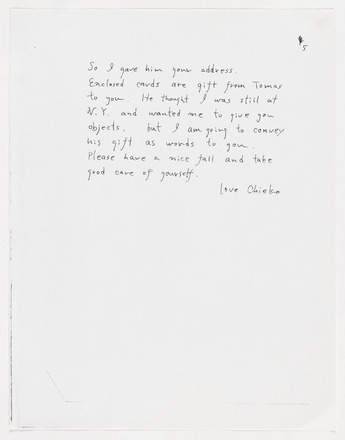 5
So I gave him your address.
Enclosed cards are gift from Tomas
to you. He thought I was still at
N.Y. and wanted me to give you
objects. but I am going to convey
his gift as words to you.
Please have a nice fall and take
good care of yourself.
love Chieko